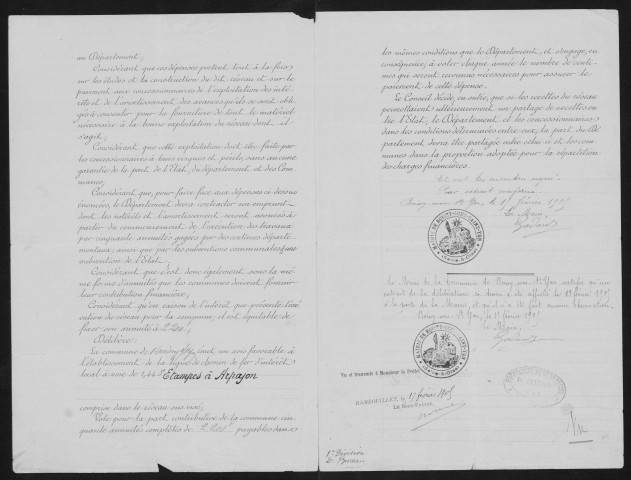 au Département;
Considérant que ces dépenses portent tout à la fois
sur les études et la construction du dit réseau et sur le
paiement aux concessionnaires de l'exploitation des inté-
rêts et de l'amortissement des avances qu'ils se sont obli-
gés à consentir pour la fourniture de tout le matériel
nécessaire à la bonne exploitation du réseau dont il
s'agit;
Considérant que cette exploitation doit être faite par
les concessionnaires à leurs risques et périls, sans aucune
garantie de la part de l'État, du département et des Com-
munes;
Considérant que, pour faire face aux dépenses ci-dessus
énoncées, le Département devra contracter un emprunt
dont les intérêts et l'amortissement seront assurés à
partir du commencement de l'exécution des travaux
par cinquante annuités gagées par des centimes départe-
mentaux, ainsi que par les subventions communales & une
subvention de l'État.
Considérant que c'est donc également sous la mê-
me forme d'annuités que les communes doivent fournir
leur contribution financière;
Considérant qu'en raison de l'intérêt que présente l'exé-
cution du réseau pour la commune, il est équitable de
fixer son annuité à
Délibère:
La commune de émet un avis favorable à
l'établissement de la ligne de chemin de fer d'intérêt
local à voie de 1,44 d'Etampes à Arpajon
comprise dans le réseau susvisé;
Vote pour la part contributive de la commune cin-
quante annuités complètes de payables dans
les mêmes conditions que le Département, et s'engage, en
conséquence, à voter chaque année le nombre de centi-
mes qui seront reconnus nécessaires pour assurer le
paiement de cette dépense.
Le Conseil décide, en outre, que si les recettes du réseau
permettaient ultérieurement un partage de recettes en-
tre l'État, le Département et les concessionnaires
dans les conditions déterminées entre eux, la part du Dé-
partement devra être partagée entre celui-ci et les com-
munes dans la proportion adoptée pour la répartition
des charges financières.
Et ont les membres signé.
Pour extrait conforme
le 1er février 1905
Le Maire,
Le Maire de la commune de Boissy-sous-St-Yon certifie qu'un
extrait de la délibération ci-dessus a été affiché le 1er février 1905
à la porte de la Mairie, et qu'il n'a été fait aucune observation.
Boissy-sous-St-Yon, le 1er février 1905
Le Maire,
Vu et transmis à Monsieur le Préfet
RAMBOUILLET, le 17 février 1905
Le Sous-Préfet,
1re Division
2e Bureau